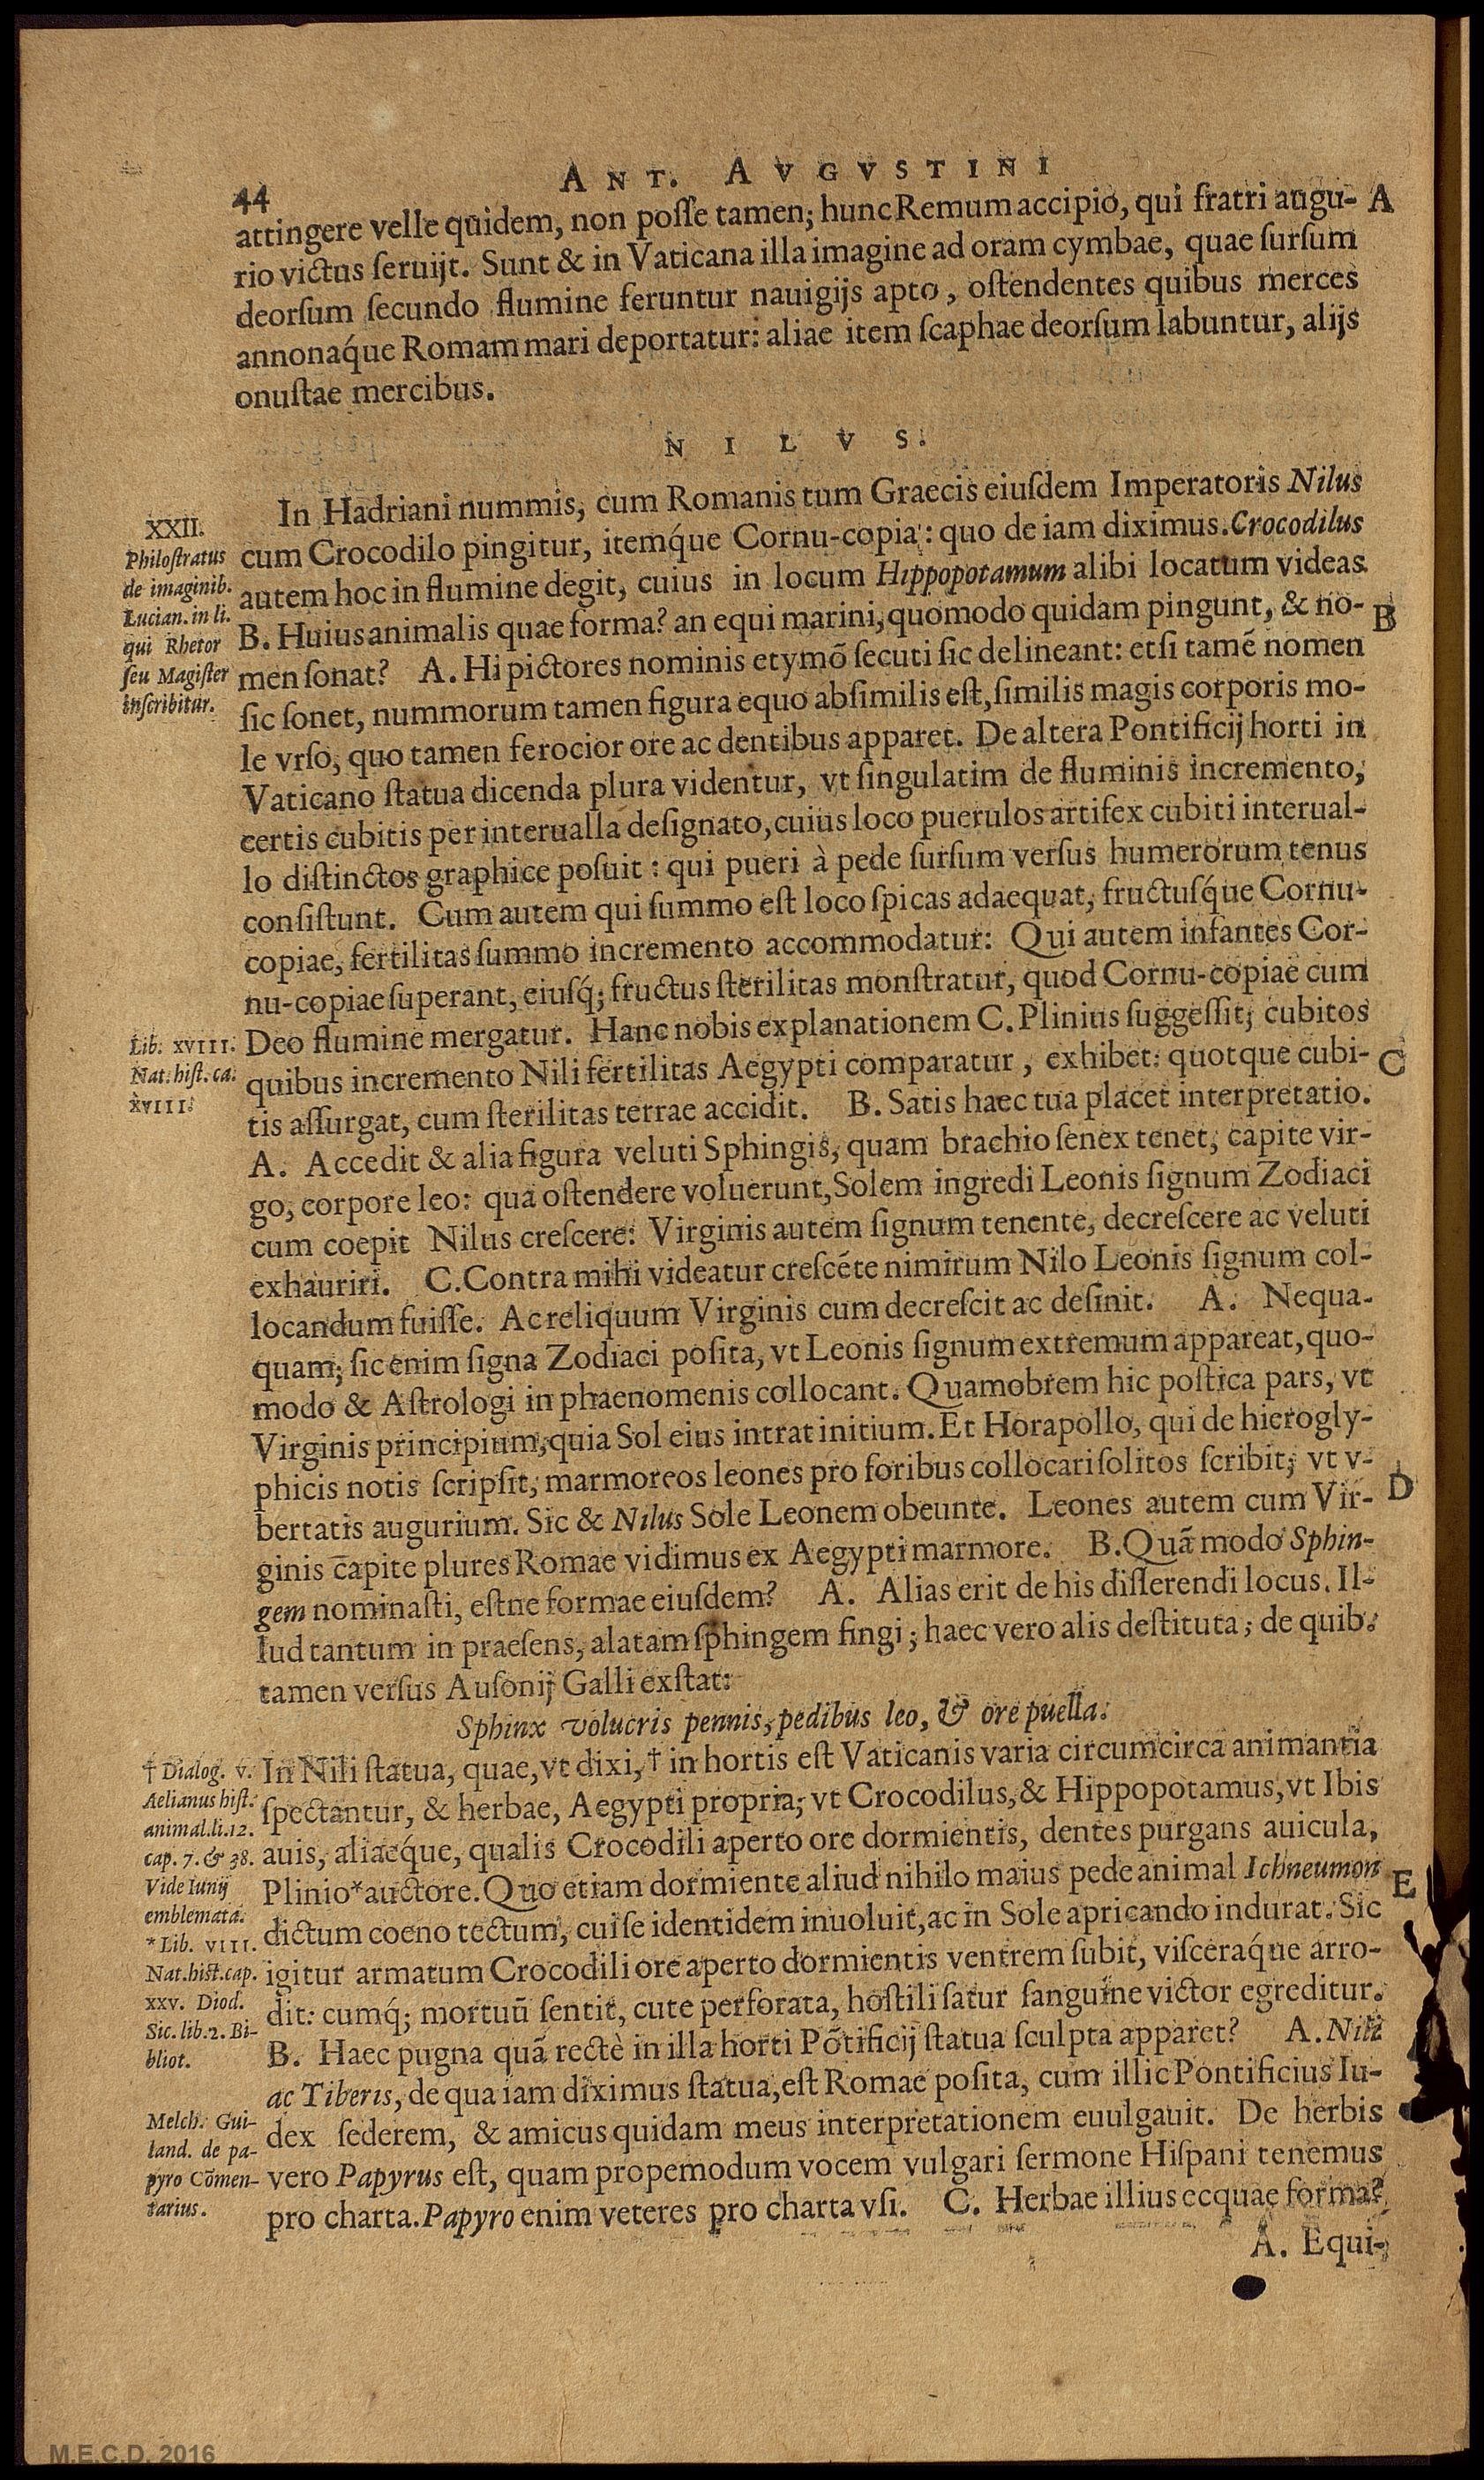 44
ANT. AVGVSTINI
attingere velle quidem, non poſſe tamen; hunc Remum accipio, qui fratri augu- A
rio victus ſeruijt. Sunt & in Vaticana illa imagine ad oram cymbae, quae ſurſum
deorſum ſecundo flumine feruntur nauigijs apto, oſtendentes quibus merces
annonaq́ue Romam mari deportatur: aliae item ſcaphae deorſum labuntur, alijs
onuſtae mercibus.
NILVS.
In Hadriani nummis, cum Romanis tum Graecis eiuſdem Imperatoris Nilus
cum Crocodilo pingitur, itemq́ue Cornu-copia: quo de iam diximus. Crocodilus
autem hoc in flumine degit, cuius in locum Hippopotamum alibi locatum videas.
B. Huius animalis quae forma? an equi marini, quomodo quidam pingunt, & no- B
men ſonat? A. Hi pictores nominis etymõ ſecuti ſic delineant: etſi tamẽ nomen
ſic ſonet, nummorum tamen figura equo abſimilis eſt, ſimilis magis corporis mo-
le vrſo, quo tamen ferocior ore ac dentibus apparet. De altera Pontificij horti in
Vaticano ſtatua dicenda plura videntur, vt ſingulatim de fluminis incremento,
certis cubitis per interualla deſignato, cuius loco puerulos artifex cubiti interual-
lo diſtinctos graphice poſuit: qui pueri à pede ſurſum verſus humerorum tenus
conſiſtunt. Cum autem qui ſummo eſt loco ſpicas adaequat, fructuſq́ue Cornu-
copiae, fertilitas ſummo incremento accommodatur: Qui autem infantes Cor-
nu-copiae ſuperant, eiuſq́; fructus ſterilitas monſtratur, quod Cornu-copiae cum
Deo flumine mergatur. Hanc nobis explanationem C. Plinius ſuggeſſit; cubitos
quibus incremento Nili fertilitas Aegypti comparatur, exhibet: quotque cubi- C
tis aſſurgat, cum ſterilitas terrae accidit. B. Satis haec tua placet interpretatio.
A. Accedit & alia figura veluti Sphingis, quam brachio ſenex tenet, capite vir-
go, corpore leo: qua oſtendere voluerunt, Solem ingredi Leonis ſignum Zodiaci
cum coepit Nilus creſcere: Virginis autem ſignum tenente, decreſcere ac veluti
exhauriri. C. Contra mihi videatur creſcẽte nimirum Nilo Leonis ſignum col-
locandum fuiſſe. Ac reliquum Virginis cum decreſcit ac deſinit. A. Nequa-
quam; ſic enim ſigna Zodiaci poſita, vt Leonis ſignum extremum appareat, quo-
modo & Aſtrologi in phaenomenis collocant. Quamobrem hic poſtica pars, vt
Virginis principium, quia Sol eius intrat initium. Et Horapollo, qui de hierogly-
phicis notis ſcripſit, marmoreos leones pro foribus collocari ſolitos ſcribit; vt v-
bertatis augurium. Sic & Nilus Sole Leonem obeunte. Leones autem cum Vir- D
ginis capite plures Romae vidimus ex Aegypti marmore. B. Quã modo Sphin-
gem nominaſti, eſtne formae eiuſdem? A. Alias erit de his diſſerendi locus. Il-
lud tantum in praeſens, alatam ſphingem fingi; haec vero alis deſtituta; de quib.
tamen verſus Auſonij Galli exſtat:
Sphinx volucris pennis, pedibus leo, & ore puella.
In Nili ſtatua, quae, vt dixi, † in hortis eſt Vaticanis varia circumcirca animantia
ſpectantur, & herbae, Aegypti propria; vt Crocodilus, & Hippopotamus, vt Ibis
auis, aliaeq́ue, qualis Crocodili aperto ore dormientis, dentes purgans auicula,
Plinio * auctore. Quo etiam dormiente aliud nihilo maius pede animal Ichneumon E
dictum coeno tectum, cui ſe identidem inuoluit, ac in Sole apricando indurat. Sic
igitur armatum Crocodili ore aperto dormientis ventrem ſubit, viſceraq́ue arro-
dit: cumq́; mortuũ ſentit, cute perforata, hoſtili ſatur ſanguine victor egreditur.
B. Haec pugna quã rectè in illa horti Põtificij ſtatua ſculpta apparet? A. Nili
ac Tiberis, de qua iam diximus ſtatua, eſt Romae poſita, cum illic Pontificius Iu-
dex ſederem, & amicus quidam meus interpretationem euulgauit. De herbis
vero Papyrus eſt, quam propemodum vocem vulgari ſermone Hiſpani tenemus
pro charta. Papyro enim veteres pro charta vſi. C. Herbae illius ecquae forma?
A. Equi-
XXII.
Philoſtratus
de imaginib.
Lucian. in li.
qui Rhetor
ſeu Magiſter
inſcribitur.
Lib. XVIII.
Nat. hiſt. ca.
XVIII.
† Dialog. v.
Aelianus hiſt.
animal. li. 12.
cap. 7. & 38.
Vide Iunij
emblemata.
* Lib. VIII.
Nat. hiſt. cap.
xxv. Diod.
Sic. lib. 2. Bi-
bliot.
Melch. Gui-
land. de pa-
pyro Cõmen-
tarius.
M.E.C.D. 2016